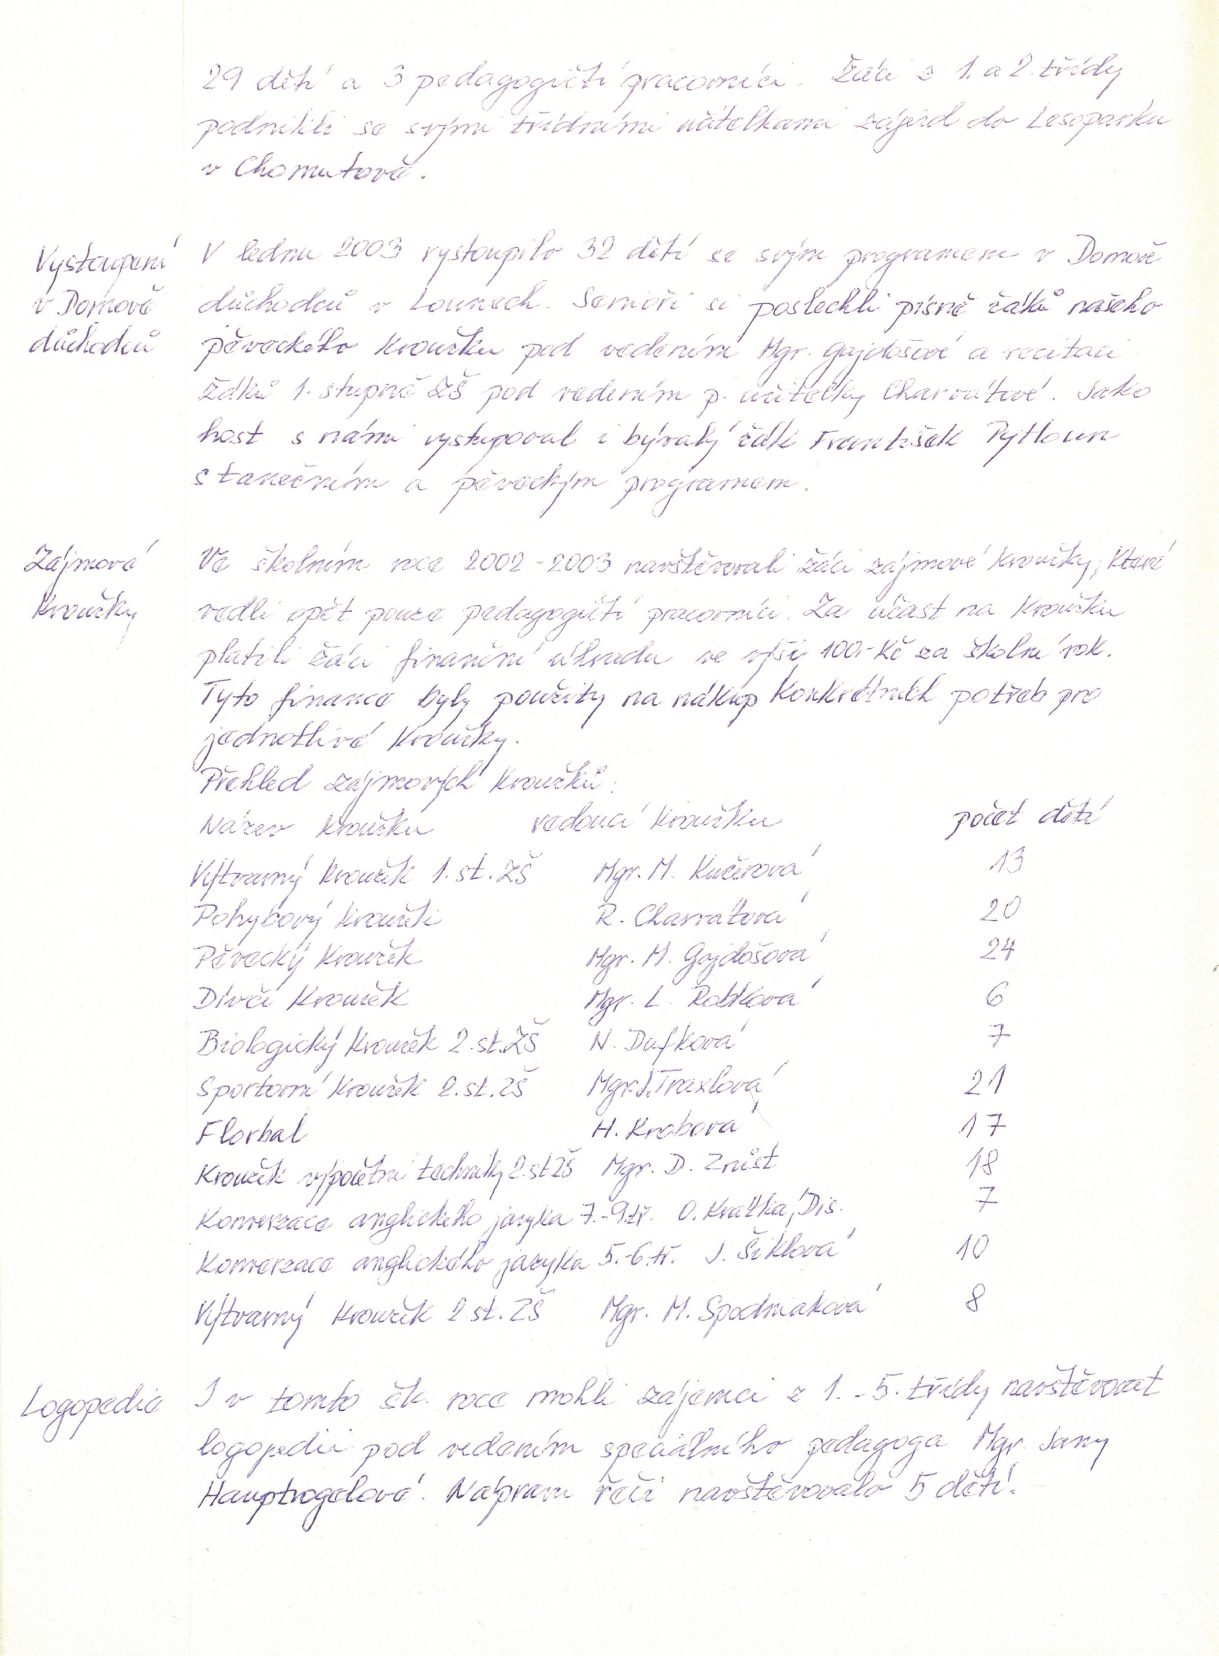 29 dětí a 3 pedagogičtí pracovníci. Žáci z 1. a 2. třídy
podnikli se svými třídními učitelkami zájezd do Lesoparku
v Chomutově.
Vystoupení
v Domově
důchodců
V lednu 2003 vystoupilo 32 dětí se svým programem v Domově
důchodců v Lounech. Senioři si poslechli písně žáků našeho
pěveckého kroužku pod vedením Mgr. Gajdošové a recitaci
žáků 1. stupně ZŠ pod vedením p. učitelky Charvátové. Jako
host s námi vystupoval i bývalý žák František Pytloun
s tanečním a pěveckým programem.
Zájmové
kroužky
Ve školním roce 2002-2003 navštěvovali žáci zájmové kroužky, které
vedli opět pouze pedagogičtí pracovníci. Za účast na kroužku
platili žáci finanční úhradu ve výši 100,- Kč za školní rok.
Tyto finance byly použity na nákup konkrétních potřeb pro
jednotlivé kroužky.
Přehled zájmových kroužků:
Název kroužku vedoucí kroužku počet dětí
Výtvarný kroužek 1. st. ZŠ Mgr. M. Kučerová 13
Pohybový kroužek R. Charvátová 20
Pěvecký kroužek Mgr. M. Gajdošová 24
Dívčí kroužek Mgr. L. Rotková 6
Biologický kroužek 2. st. ZŠ N. Dufková 7
Sportovní kroužek 2. st. ZŠ Mgr. J. Traxlová 21
Florbal H. Krobová 17
Kroužek výpočetní techniky 2. st ZŠ Mgr. D. Zrůst 18
Konverzace anglického jazyka 7.-9. tř. O. Krátká, Dis. 7
Konverzace anglického jazyka 5.-6. tř. J. Šiklová 10
Výtvarný kroužek 2. st. ZŠ Mgr. M. Spodniaková 8
Logopedie
I v tomto šk. roce mohli zájemci z 1. - 5. třídy navštěvovat
logopedii pod vedením speciálního pedagoga Mgr. Jany
Hauptvogelové. Nápravu řeči navštěvovalo 5 dětí.